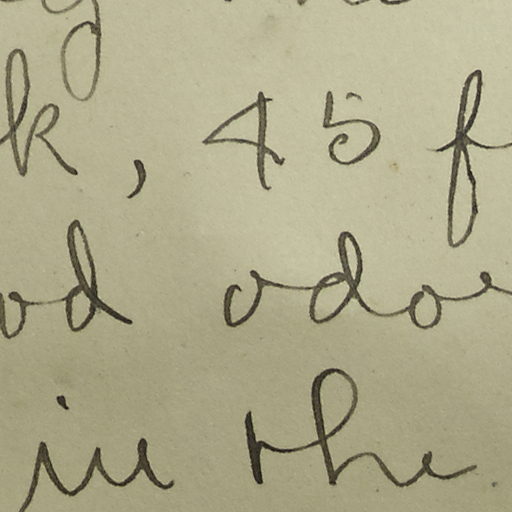 k, 45 f
od odo
in the